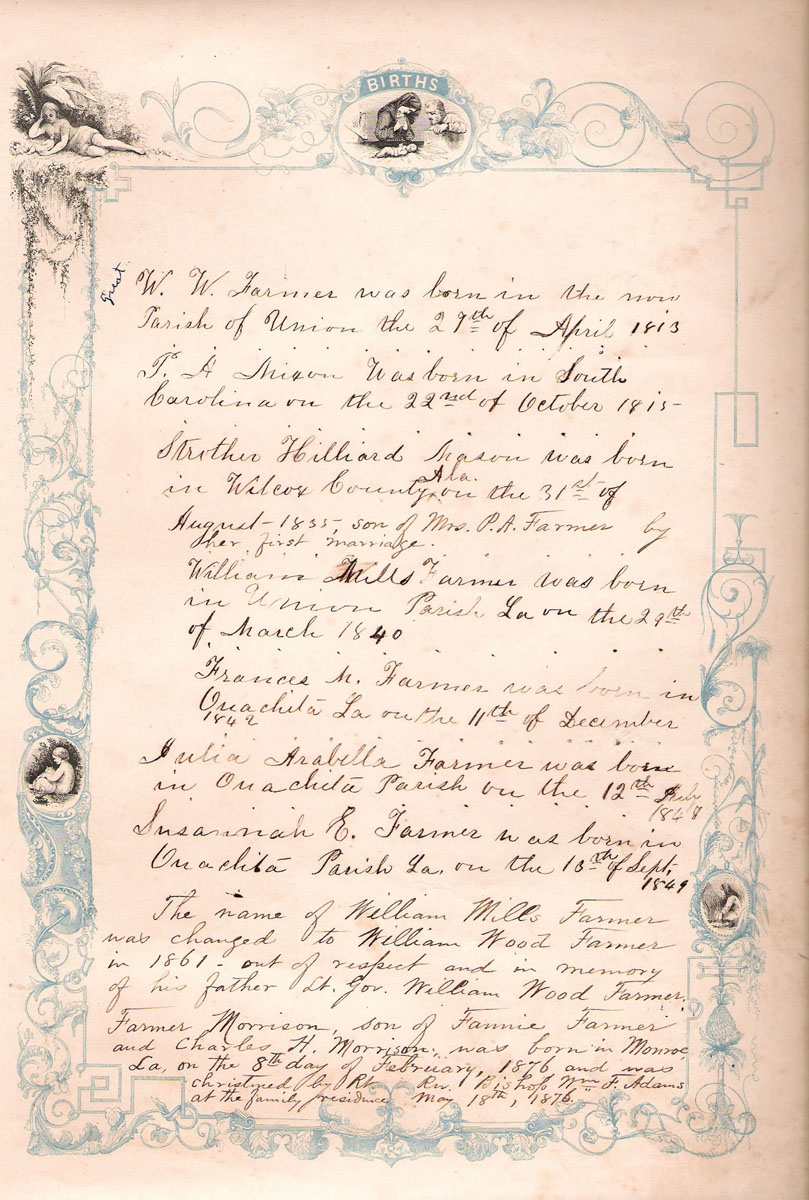 BIRTHS
great
W. W. Farmer was born in the now
Parish of Union the 29th of April 1813
P. A Mixon Was born in South
Carolina on the 22nd of October 1815
Strother Hilliard Mason was born
in Wilcox County Ala. on the 31st of
August 1835, son of Mrs. P. A. Farmer by
her first marriage.
William Mills Farmer was born
in Union Parish La on the 29th
of March 1840
Frances M. Farmer was born in
Ouachita La on the 11th of December
1842
Julia Arabella Farmer was born
in Ouachita Parish on the 12th July
184
Susannah E. Farmer was born in
Ouachita Parish La. on the 13th of Sept.
1849
The name of William Mills Farmer
was changed to William Wood Farmer
in 1861 - out of respect and in memory
of his father Lt. Gov. William Wood Farmer.
Farmer Morrison, son of Fannie Farmer
and Charles H. Morrison, was born in Monroe
La, on the 8th day of February, 1876 and was
christined by Rt. Rev. Bishop Wm F. Adams
at the family residence May 18th, 1876.